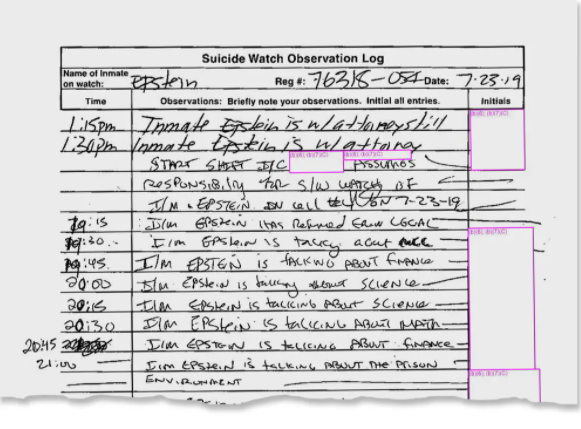 Suicide Watch Observation Log
Name of Inmate on watch: EPStein Reg #: 76318-054 Date: 7-23-19
Time Observations: Briefly note your observations. Initial all entries. Initials
1:15pm Inmate Epstein is w/attorney still
1:30pm Inmate Epstein is w/attorney
START SHIFT I/C (b)(6); (b)(7)(C) (b)(6); (b)(7)(C) ASSUMES
RESPONSIBILITY FOR S/W WATCH OF
I/M EPSTEIN IN cell ON 7-23-19
19:15 I/M EPSTEIN HAS Returned From LEGAL
19:30 I/M EPSTEIN IS talking about
19:45 I/M EPSTEIN IS TALKING ABOUT FINANCE
20:00 I/M EPSTEIN IS talking about SCIENCE
20:15 I/M EPSTEIN IS talking ABOUT SCIENCE
20:30 I/M EPSTEIN IS talking ABOUT MATH
20:45 I/M EPSTEIN IS talking ABOUT FINANCE
21:00 I/M EPSTEIN IS talking ABOUT THE PRISON
ENVIRONMENT
(b)(6); (b)(7)(C)
(b)(6); (b)(7)(C)
(b)(6); (b)(7)(C)